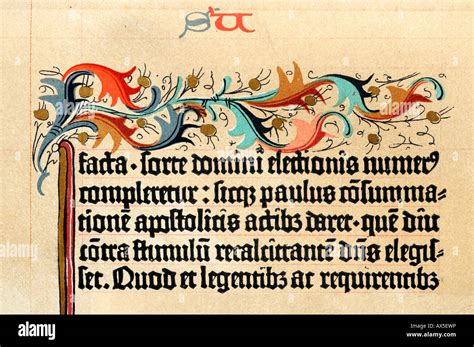 SU
facta · sorte domini electionis numerꝰ
compleretur : sicqꝫ paulus cōsumma⸗
tionē apostolicis actibꝫ daret · quē diu
cōtra stimulū recalcitrantē dn̄s elegis⸗
set. Quod et legentibꝫ ac requirentibꝫ
alamy
Image ID: AX5EWP
www.alamy.com